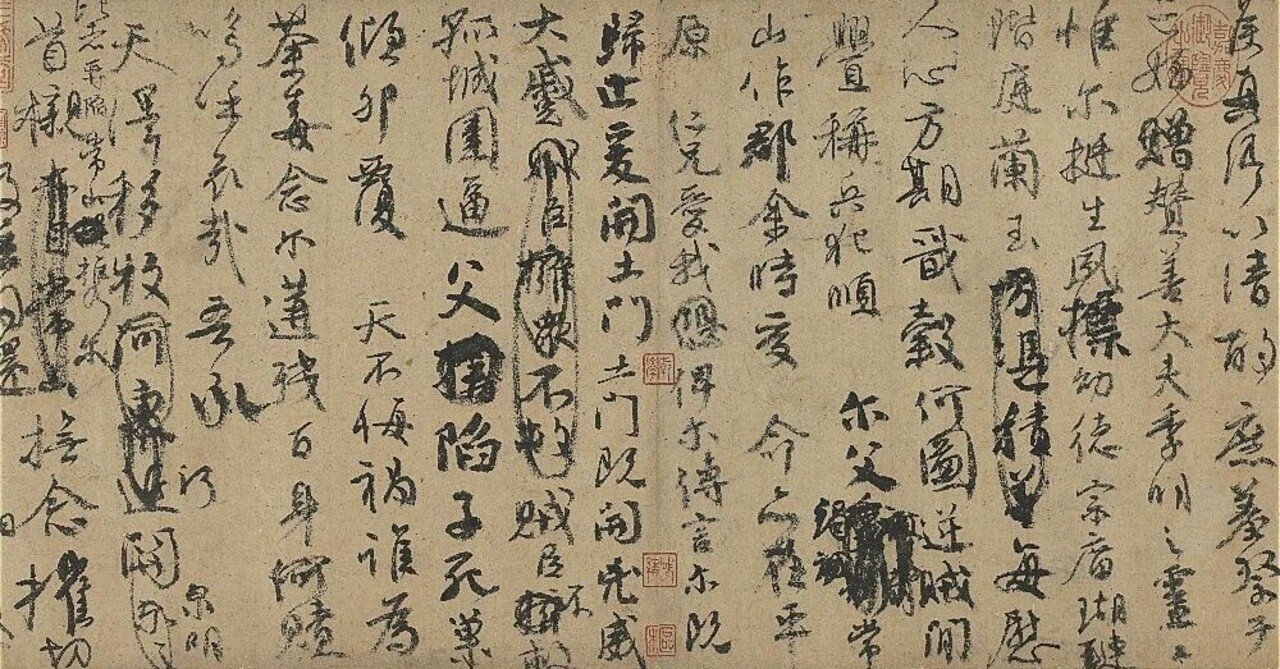 侯真卿以清酌庶羞祭于
亡姪贈贊善大夫季明之靈
惟爾挺生夙標幼德宗廟瑚璉
階庭蘭玉方憑積善每慰
人心方期戩穀何圖逆賊間
釁稱兵犯順爾父竭誠常
山作郡余時受命亦在平
原仁兄愛我恐俾爾傳言爾既
歸止爰開土門土門既開凶威
大蹙賊臣擁眾不救賊臣不
孤城圍逼父擒陷子死巢
傾卵覆天不悔禍誰為
荼毒念爾遘殘百身何贖
嗚呼哀哉吾承
天澤移牧河東近河關泉明
比者再陷常山攜爾
首櫬亦自常山撫念摧切
及茲同還